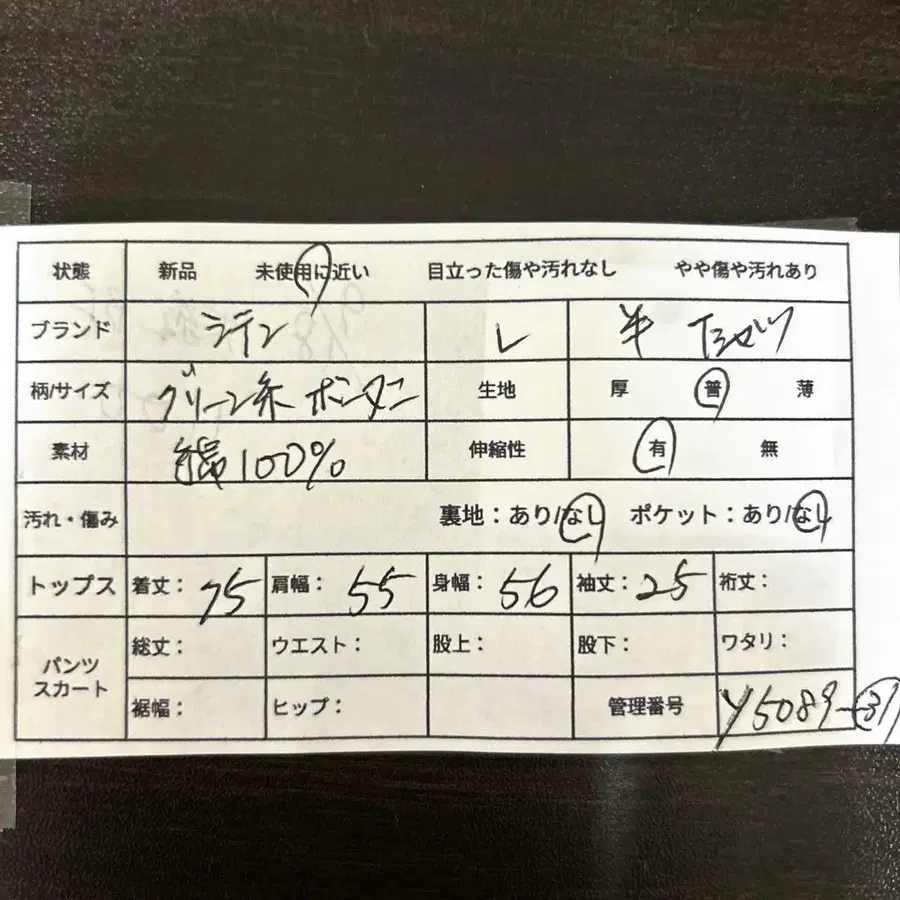 状態 新品 未使用に近い 目立った傷や汚れなし やや傷や汚れあり
ブランド ラテン L 半 Tシャツ
柄/サイズ グリーン系 ボタニ 生地 厚 普 薄
素材 綿100% 伸縮性 有 無
汚れ・傷み 裏地：あり/なし ポケット：あり/なし
トップス 着丈： 75 肩幅： 55 身幅： 56 袖丈： 25 裄丈：
パンツ スカート 総丈： ウエスト： 股上： 股下： ワタリ：
裾幅： ヒップ： 管理番号 Y5089-31